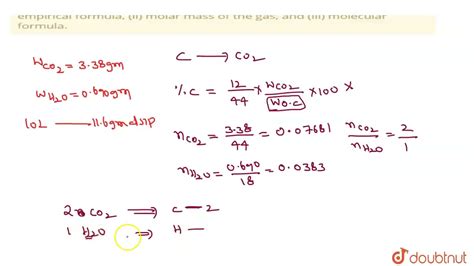 empirical formula, (ii) molar mass of the gas, and (iii) molecular
formula.
W CO2 = 3.38gm
W H2O = 0.690gm
10L ⟶ 11.6gm at STP
C ⟶ CO2
%.C = 12/44 × WCO2/W O.C × 100 ×
nCO2 = 3.38/44 = 0.07681 nCO2/nH2O = 2/1
nH2O = 0.690/18 = 0.0383
2 CO2 ⟹ C — 2
1 H2O ⟹ H —
doubtnut